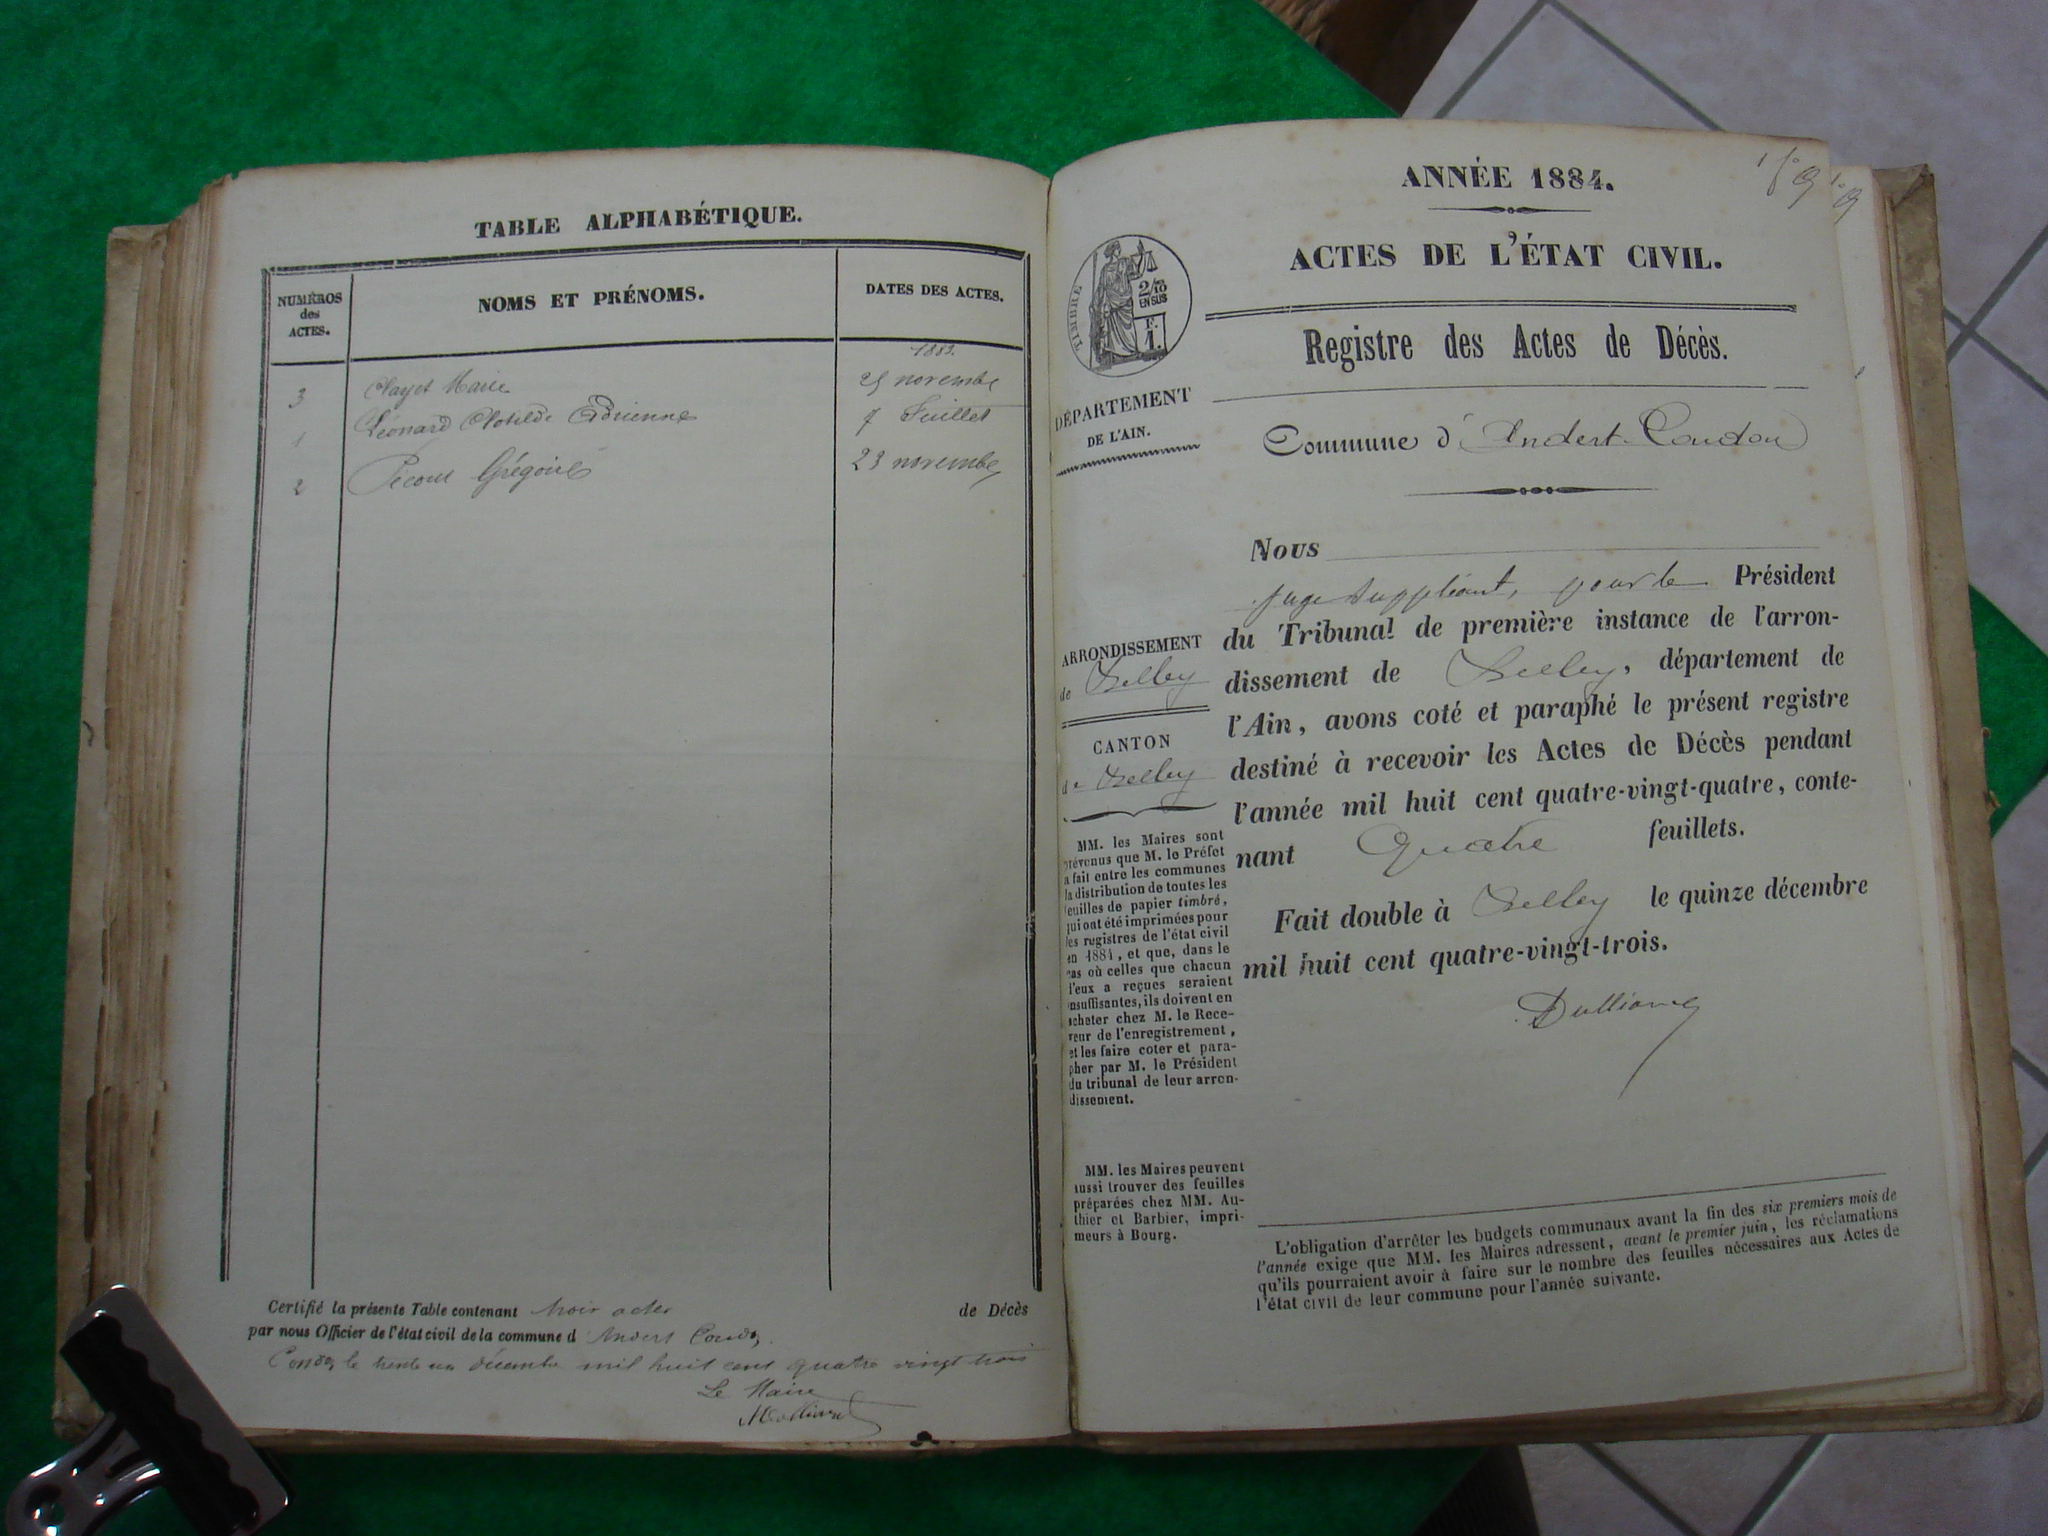 TABLE ALPHABÉTIQUE.
NUMÉROS des ACTES.
NOMS ET PRÉNOMS.
DATES DES ACTES.
1883.
3 Marie 25 novembre
1 Léonard Clotilde Adrienne 7 Juillet
2 Pécour Grégoire 23 novembre
Certifié la présente Table contenant trois actes de Décès
par nous Officier de l'état civil de la commune d Andert Condon
Condon le trente un décembre mil huit cent quatre vingt trois
Le Maire
ANNÉE 1884.
ACTES DE L'ÉTAT CIVIL.
TIMBRE
2/10
EN SUS
F.
1.
Registre des Actes de Décès.
DÉPARTEMENT
DE L'AIN.
Commune d'Andert-Condon
Nous
juge suppléant, pour le Président
du Tribunal de première instance de l'arron-
dissement de Belley, département de
l'Ain, avons coté et paraphé le présent registre
destiné à recevoir les Actes de Décès pendant
l'année mil huit cent quatre-vingt-quatre, conte-
nant Quatre feuillets.
Fait double à Belley le quinze décembre
mil huit cent quatre-vingt-trois.
ARRONDISSEMENT
de Belley
CANTON
de Belley
MM. les Maires sont
prévenus que M. le Préfet
a fait entre les communes
la distribution de toutes les
feuilles de papier timbré,
qui ont été imprimées pour
les registres de l'état civil
en 1884, et que, dans le
cas où celles que chacun
d'eux a reçues seraient
insuffisantes, ils doivent en
acheter chez M. le Rece-
veur de l'enregistrement,
et les faire coter et para-
pher par M. le Président
du tribunal de leur arron-
dissement.
MM. les Maires peuvent
aussi trouver des feuilles
préparées chez MM. Au-
thier et Barbier, impri-
meurs à Bourg.
L'obligation d'arrêter les budgets communaux avant la fin des six premiers mois de
l'année exige que MM. les Maires adressent, avant le premier juin, les réclamations
qu'ils pourraient avoir à faire sur le nombre des feuilles nécessaires aux Actes de
l'état civil de leur commune pour l'année suivante.